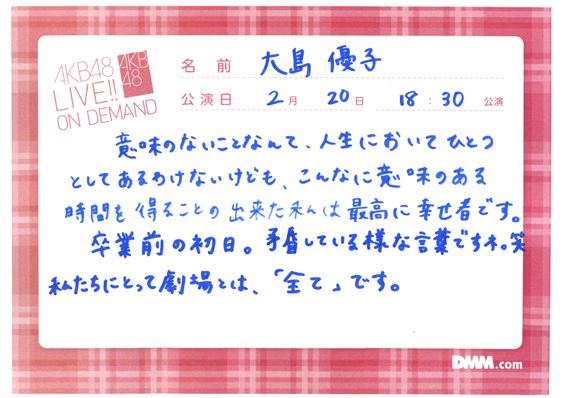 AKB48
LIVE!!
ON DEMAND
AKB
48
名 前 大島 優子
公演日 2月 20日 18:30 公演
意味のないことなんて、人生においてひとつ
としてあるわけないけども、こんなに意味のある
時間を得ることの出来た私は最高に幸せ者です。
卒業前の初日。矛盾している様な言葉ですネ。笑
私たちにとって劇場とは、「全て」です。
DMM.com